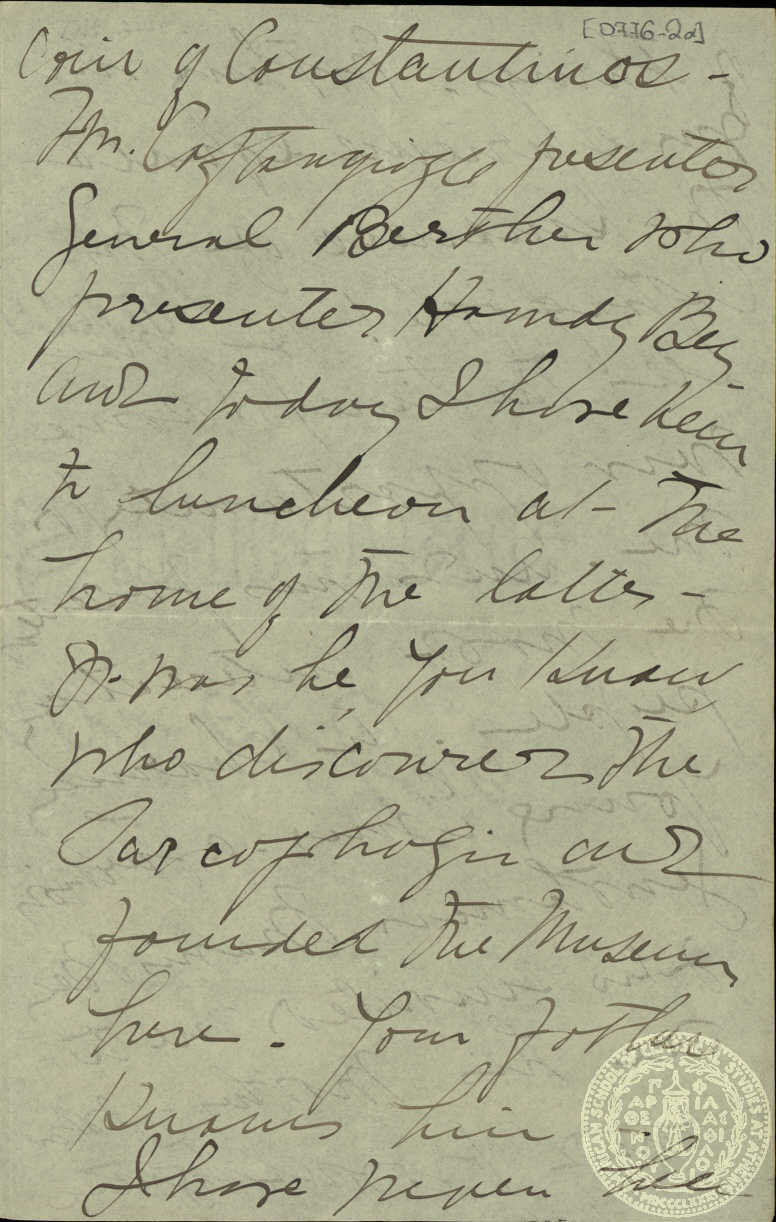 [0776-2a]
Coin of Constantinos -
presented
General Berther who
presented Hamdy Bey
and today I have been
to luncheon at - the
home of the latter -
It was he, you know
who discovered the
Sarcophagii and
founded the Museum
here - Your father
knows him -
I have never been